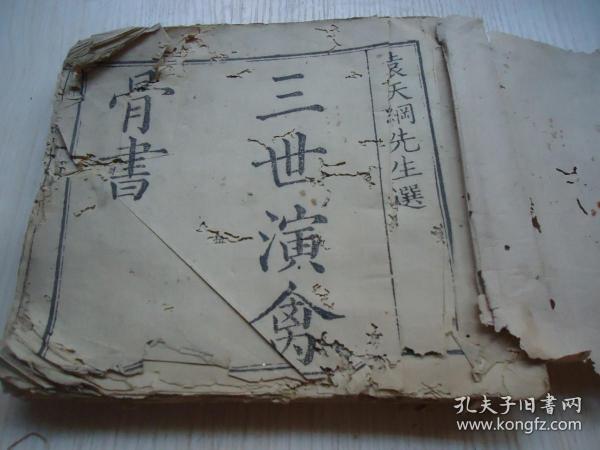 袁天綱先生選
三世演禽
骨書
孔夫子旧書网
www.kongfz.com